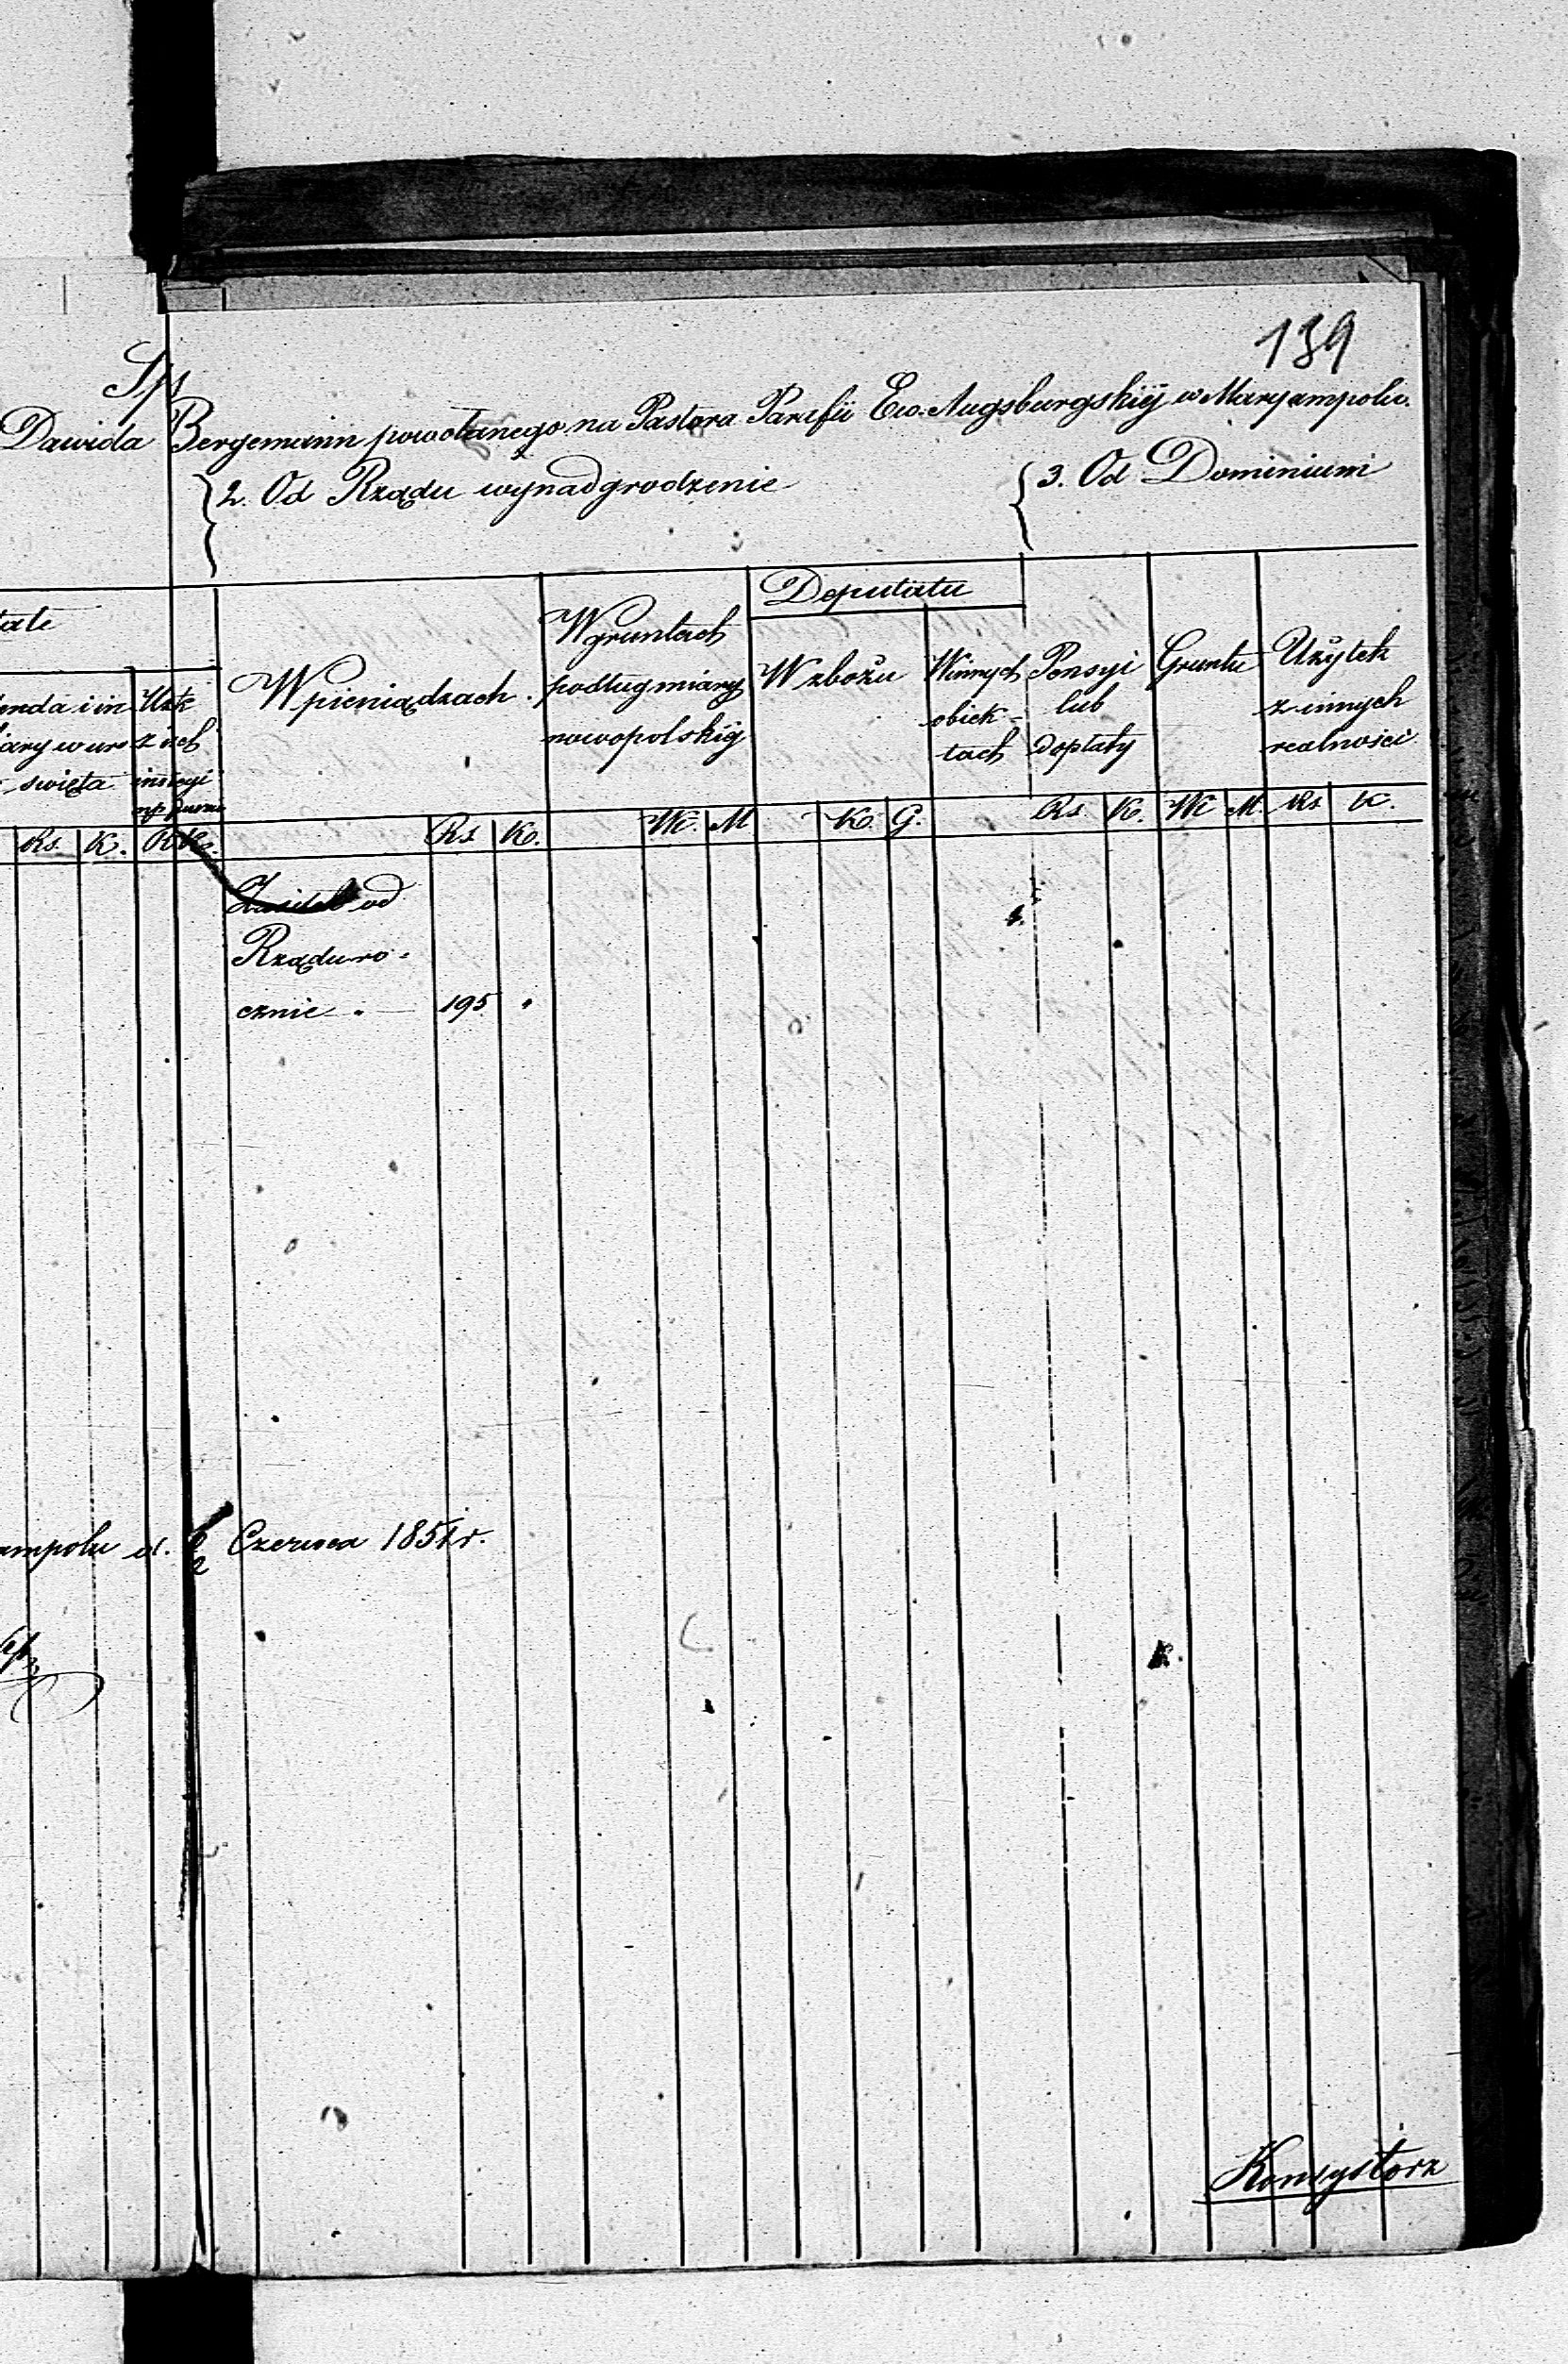 139
Sp
Dawida Bergemann powołanego na Pastora Parafii Ew. Augsburgskiéj w Maryampolu.
2. Od Rządu wynadgrodzenie
3. Od Dominium
W pieniądzach.
W gruntach
podług miary
nowopolskiéj
Deputatu
W zbożu
W innych
obiek-
tach
Pensyi
lub
dopłaty
Gruntu
Użytek
z innych
realności
enda i in
święta
Rs. K. R K.
Rs. K.
M
K. G.
Rs. K.
M.
Rs K.
Zasiłek od
Rządu ro-
cznie - 195 "
ampolu d. Czerwca 1851 r.
Konsystorz